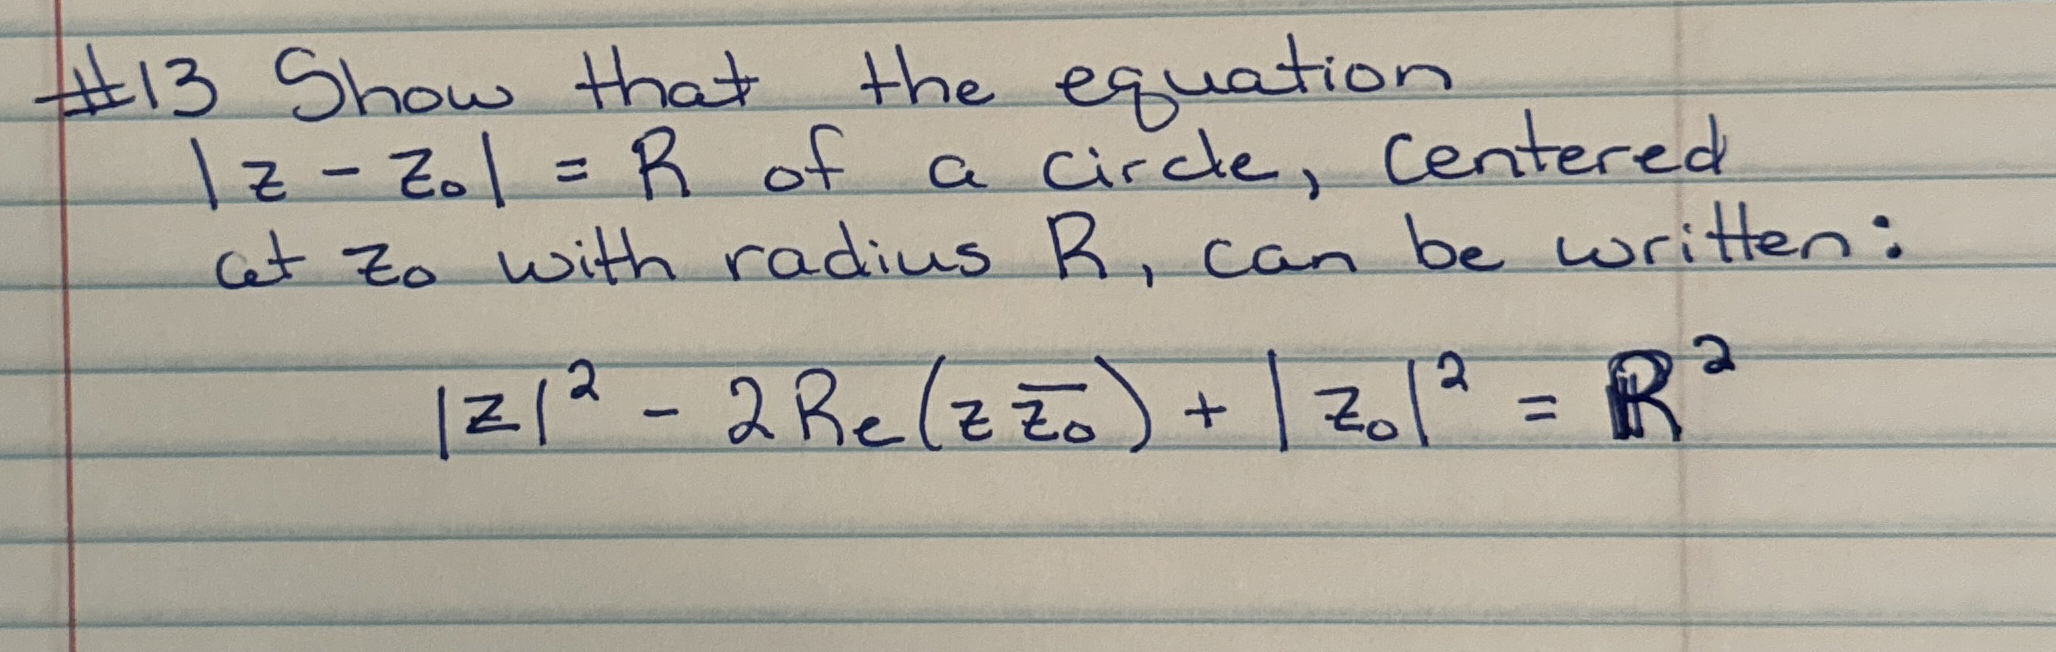 #13 Show that the equation
|z - z₀| = R of a circle, centered
at z₀ with radius R, can be written:
|z|² - 2Re(z z̅₀) + |z₀|² = R²